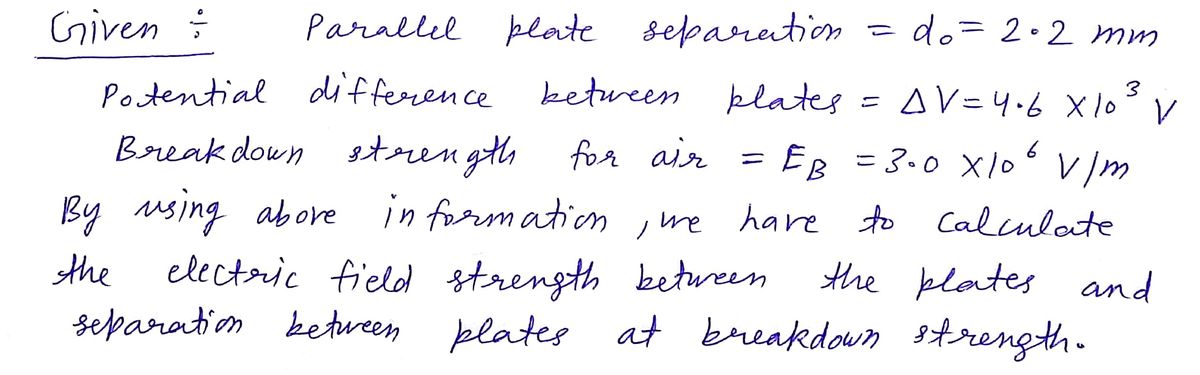 Given ÷ Parallel plate separation = d₀ = 2.2 mm
Potential difference between plates = ΔV = 4.6 × 10³ V
Breakdown strength for air = E_B = 3.0 × 10⁶ V/m
By using above information, we have to calculate
the electric field strength between the plates and
separation between plates at breakdown strength.